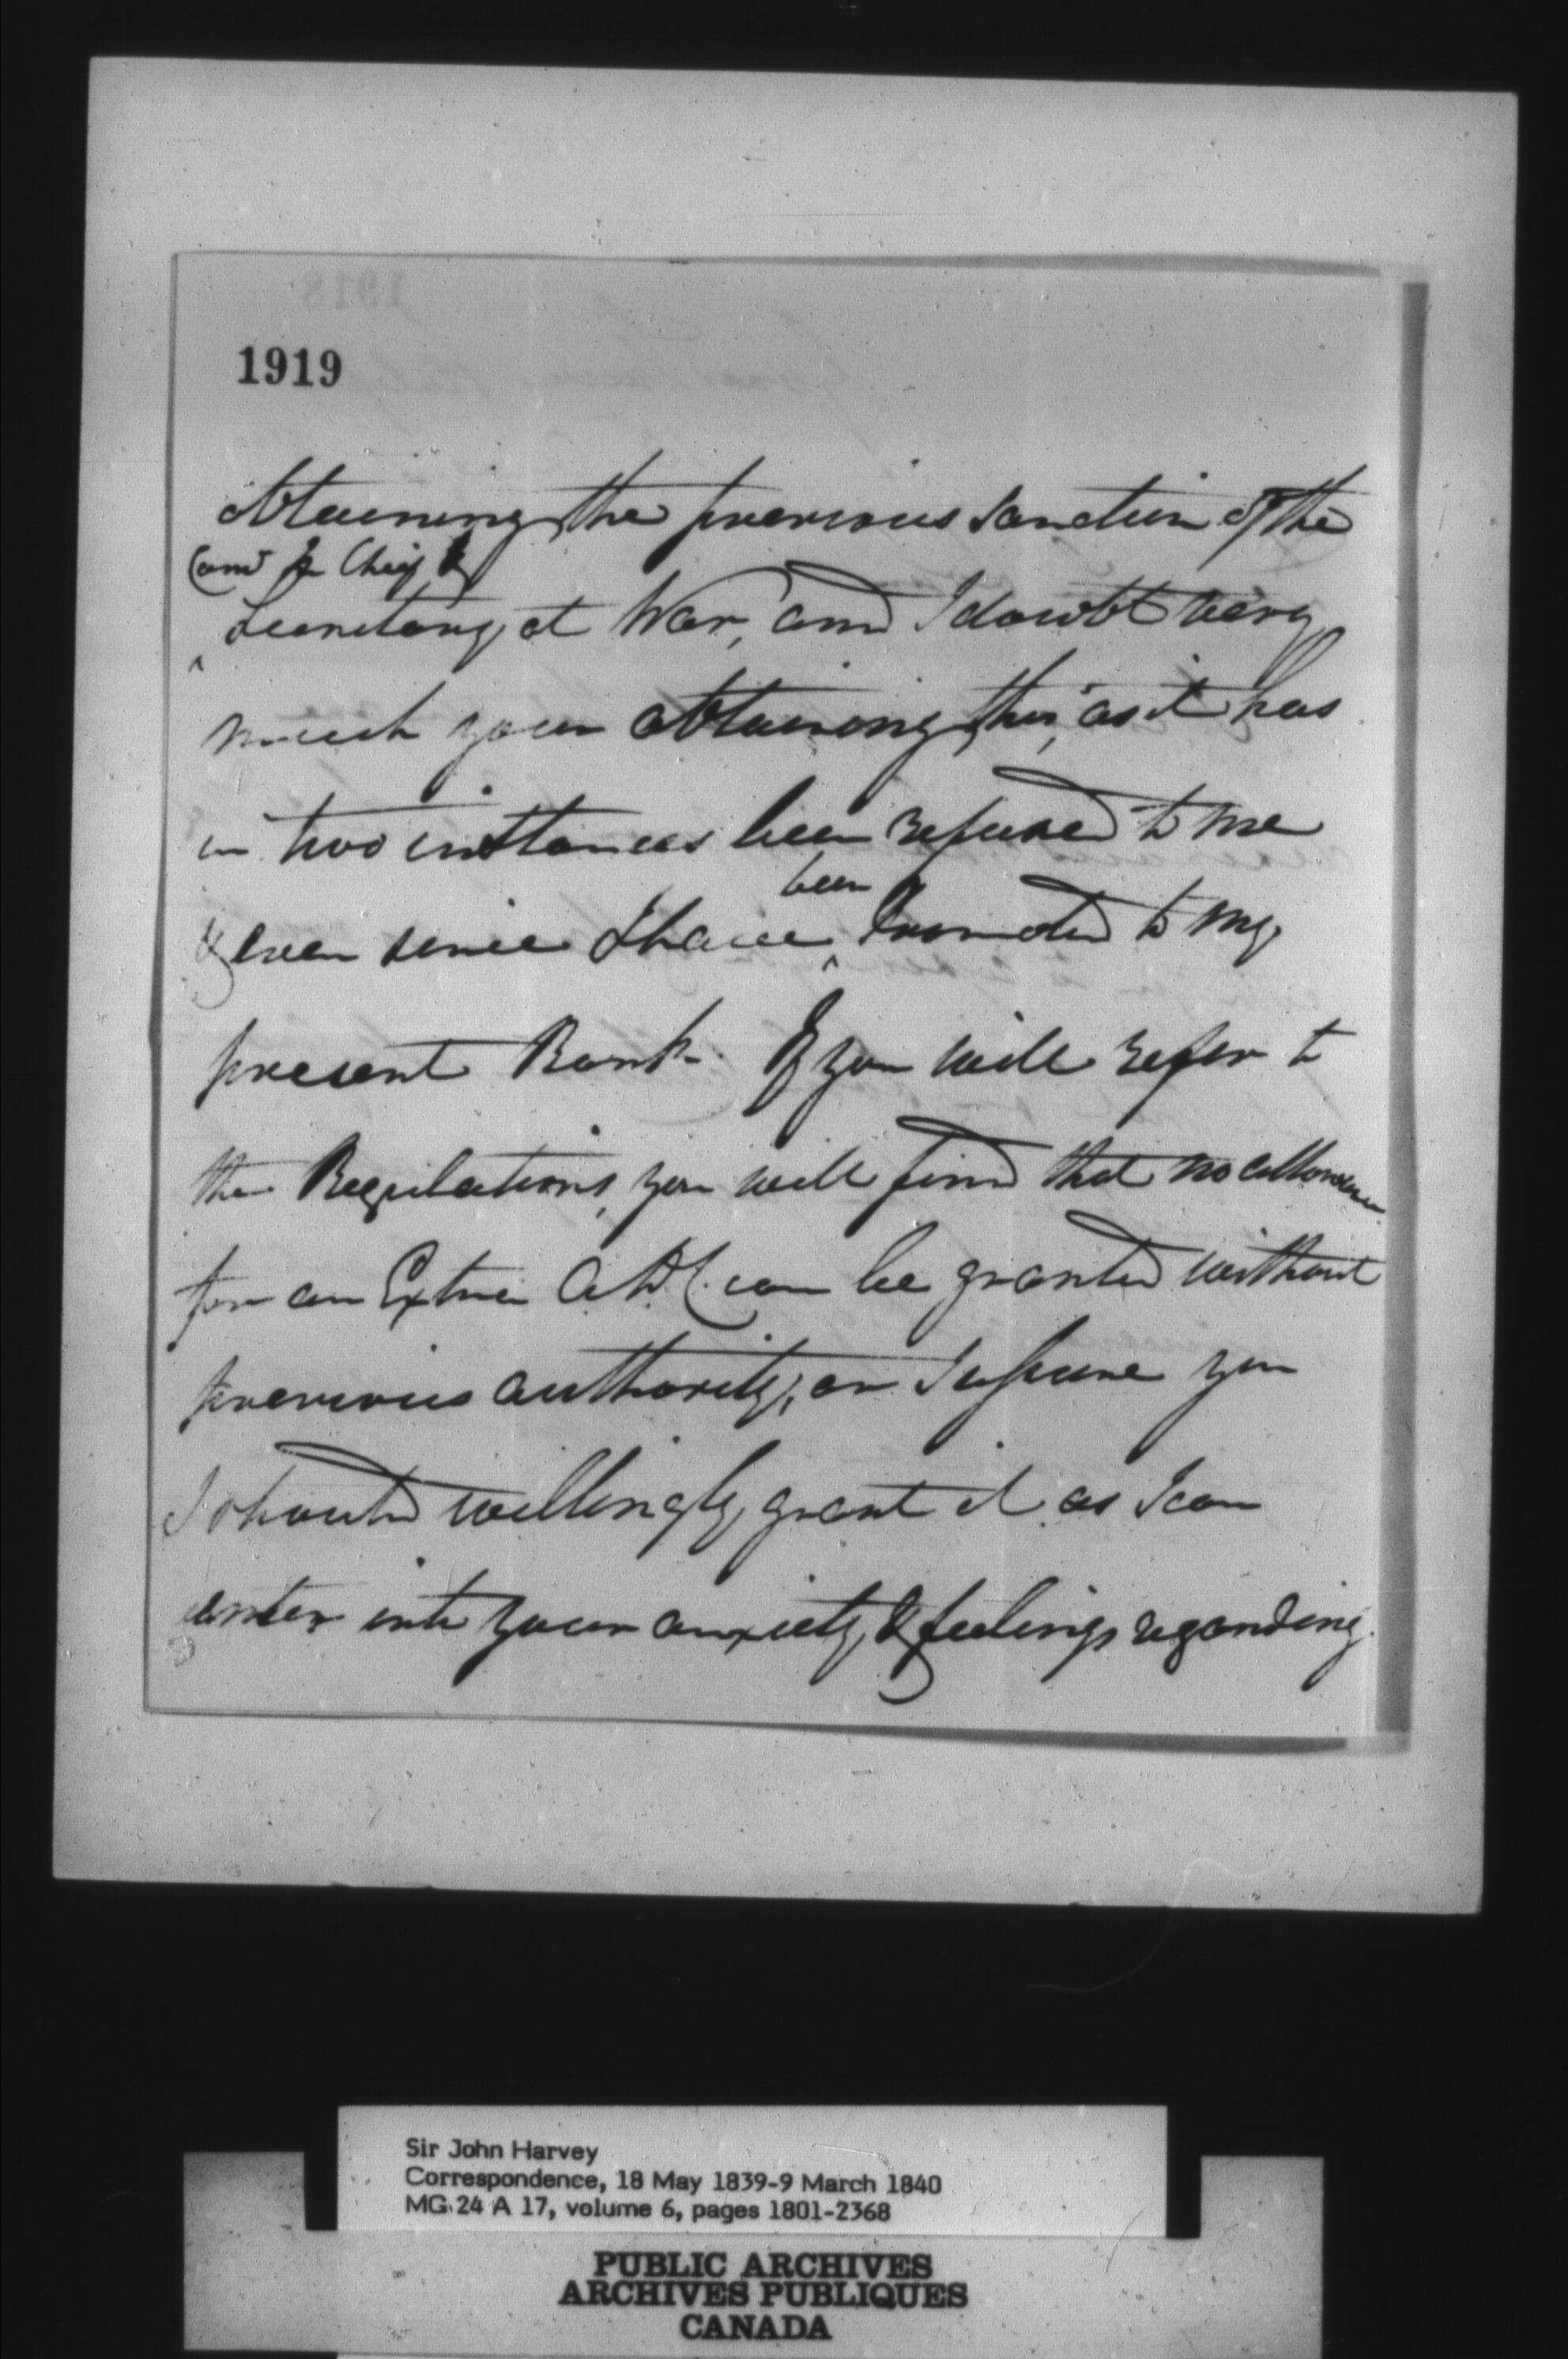 1919
obtaining the previous sanction of the
Comr in Chief &
Secretary at War, and I doubt very
much your obtaining this, as it has
in two instances been refused to me
& even since I have been promoted to my
present Rank. If you will refer to
the Regulations, you will find that no allowance
for an Extra A.D.C. can be granted without
previous authority, or I assure you
I should willingly grant it as I can
enter into your anxiety & feelings regarding
Sir John Harvey
Correspondence, 18 May 1839-9 March 1840
MG 24 A 17, volume 6, pages 1801-2368
PUBLIC ARCHIVES
ARCHIVES PUBLIQUES
CANADA